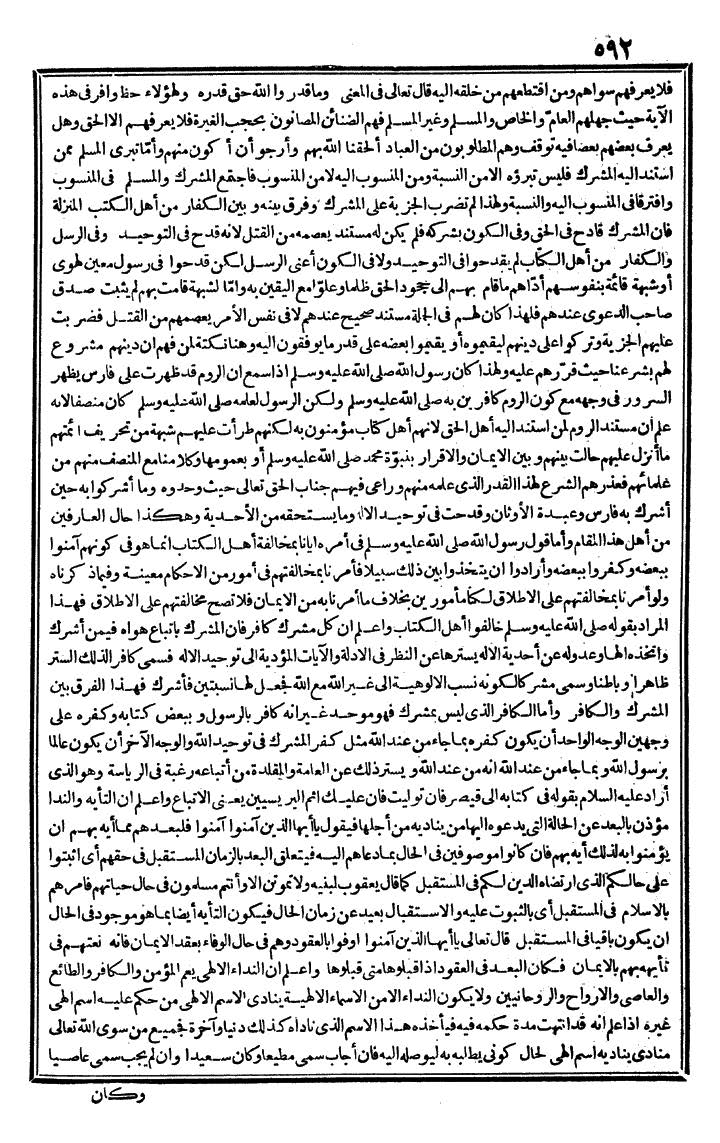 ٥٩٢
فلا يعرفهم سواهم ومن اقتطعهم من خلقه اليه قال تعالى فى المعنى وماقدروا الله حق قدره ولهؤلاء حظ وافر فى هذه
الآية حيث جهلهم العام والخاص والمسلم وغير المسلم فهم الضنائن المصانون بحجب الغيرة فلا يعرفهم الا الحق وهل
يعرف بعضهم بعضا فيه توقف وهم المطلوبون من العباد ألحقنا الله بهم وأرجو أن أكون منهم وأما تبرى المسلم ممن
استند اليه المشرك فليس تبرؤه الا من النسبة ومن المنسوب اليه لا من المنسوب فاجتمع المشرك والمسلم فى المنسوب
وافترقا فى المنسوب اليه والنسبة ولهذا لم تضرب الجزية على المشرك وفرق بينه وبين الكفار من أهل الكتب المنزلة
فان المشرك قادح فى الحق وفى الكون بشركه فلم يكن له مستند يعصمه من القتل لانه قدح فى التوحيد وفى الرسل
والكفار من أهل الكتاب لم يقدحوا فى التوحيد ولا فى الكون أعنى الرسل لكن قدحوا فى رسول معين لهوى
أو شبهة قائمة بنفوسهم أداهم ما قام بهم الى جحود الحق ظلما وعلوا مع اليقين به واما لشبهة قامت بهم لم يثبت صدق
صاحب الدعوى عندهم فلهذا كان لهم فى الجملة مستند صحيح عندهم لا فى نفس الأمر يعصمهم من القتل فضربت
عليهم الجزية وتركوا على دينهم ليقيموه أو يقيموا بعضه على قدر ما يوفقون اليه وهنا نكتة لمن فهم ان دينهم مشروع
لهم بشرعنا حيث قررهم عليه ولهذا كان رسول الله صلى الله عليه وسلم اذا سمع ان الروم قد ظهرت على فارس يظهر
السرور فى وجهه مع كون الروم كافرين به صلى الله عليه وسلم ولكن الرسول لعلمه صلى الله عليه وسلم كان منصفا لانه
علم ان مستند الروم لمن استند اليه أهل الحق لانهم أهل كتاب مؤمنون به لكنهم طرأت عليهم شبهة من تحريف ائمتهم
ما أنزل عليهم حالت بينهم وبين الايمان والاقرار بنبوة محمد صلى الله عليه وسلم أو بعمومها وكلامنا مع المنصف منهم من
علمائهم فعذرهم الشرع لهذا القدر الذى علمه منهم وراعى فيهم جناب الحق تعالى حيث وحدوه وما أشركوا به حين
أشرك به فارس وعبدة الأوثان وقدحت فى توحيد الاله وما يستحقه من الأحدية وهكذا حال العارفين
من أهل هذا المقام وأما قول رسول الله صلى الله عليه وسلم فى أمره ايانا بمخالفة أهل الكتاب انما هو فى كونهم آمنوا
ببعضه وكفروا ببعضه وأرادوا ان يتخذوا بين ذلك سبيلا فأمرنا بمخالفتهم فى أمور من الاحكام معينة وفيما ذكرناه
ولو أمرنا بمخالفتهم على الاطلاق لكنا مأمورين بخلاف ما أمرنا به من الايمان فلا تصح مخالفتهم على الاطلاق فهذا
المراد بقوله صلى الله عليه وسلم خالفوا أهل الكتاب واعلم ان كل مشرك كافر فان المشرك باتباع هواه فيمن أشرك
واتخذه الها وعدوله عن أحدية الاله يسترها عن النظر فى الادلة والآيات المؤدية الى توحيد الاله فسمى كافرا لذلك الستر
ظاهرا وباطنا وسمى مشركا لكونه نسب الالوهية الى غير الله مع الله فجعل لها نسبتين فأشرك فهذا الفرق بين
المشرك والكافر وأما الكافر الذى ليس بمشرك فهو موحد غير انه كافر بالرسول وببعض كتابه وكفره على
وجهين الوجه الواحد أن يكون كفره بما جاء من عند الله مثل كفر المشرك فى توحيد الله والوجه الآخر أن يكون عالما
برسول الله وبما جاء من عند الله انه من عند الله ويستر ذلك عن العامة والمقلدة من أتباعه رغبة فى الرياسة وهو الذى
أراد عليه السلام بقوله فى كتابه الى قيصر فان توليت فان عليك اثم اليريسيين يعنى الاتباع واعلم ان التأيه والندا
مؤذن بالبعد عن الحالة التى يدعوه اليها من يناديه من أجلها فيقول يا أيها الذين آمنوا آمنوا فلبعدهم مما أيه بهم ان
يؤمنوا به لذلك أيه بهم فان كانوا موصوفين فى الحال بما دعاهم اليه فيتعلق البعد بالزمان المستقبل فى حقهم أى اثبتوا
على حالكم الذى ارتضاه الدين لكم فى المستقبل كما قال يعقوب لبنيه ولا تموتن الا وأنتم مسلمون فى حال حياتهم فامرهم
بالاسلام فى المستقبل أى بالثبوت عليه والاستقبال بعيد عن زمان الحال فيكون التأيه أيضا بما هو موجود فى الحال
ان يكون باقيا فى المستقبل قال تعالى يا أيها الذين آمنوا اوفوا بالعقود وهم فى حال الوفاء بعقد الايمان فانه نعتهم فى
تأيهه بهم بالايمان فكان البعد فى العقود اذا قبلوها متى قبلوها واعلم ان النداء الالهى يعم المؤمن والكافر والطائع
والعاصى والارواح والروحانيين ولا يكون النداء الا من الاسماء الالهية ينادى الاسم الالهى من حكم عليه اسم الهى
غيره اذا علم انه قد انتهت مدة حكمه فيه فيأخذه هذا الاسم الذى ناداه كذلك دنيا وآخرة فجميع من سوى الله تعالى
منادى يناديه اسم الهى لحال كونى يطالبه به ليوصله اليه فان أجاب سمى مطيعا وكان سعيدا وان لم يجب سمى عاصيا
وكان